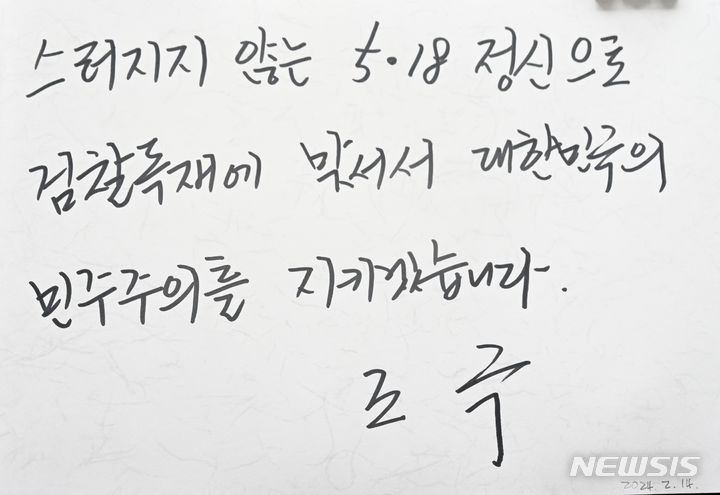 스러지지 않는 5·18 정신으로
검찰독재에 맞서서 대한민국의
민주주의를 지키겠습니다.
조 국
NEWSIS
2024. 2. 14.